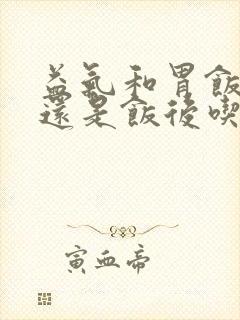 益氣和胃飯
還是飯後喫
寅血帝